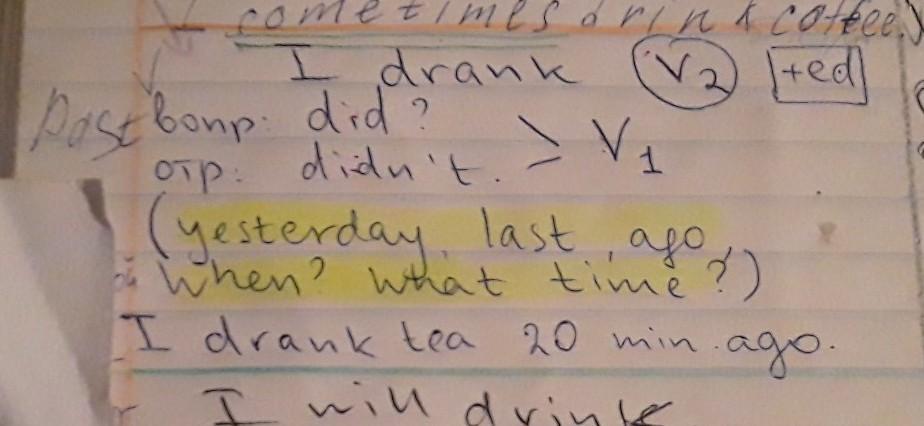 I sometimes drink coffee.
I drank V2 +ed
Past вопр: did?
отр: didn't. > V1
(yesterday, last, ago,
When? What time?)
I drank tea 20 min. ago.
I will drink